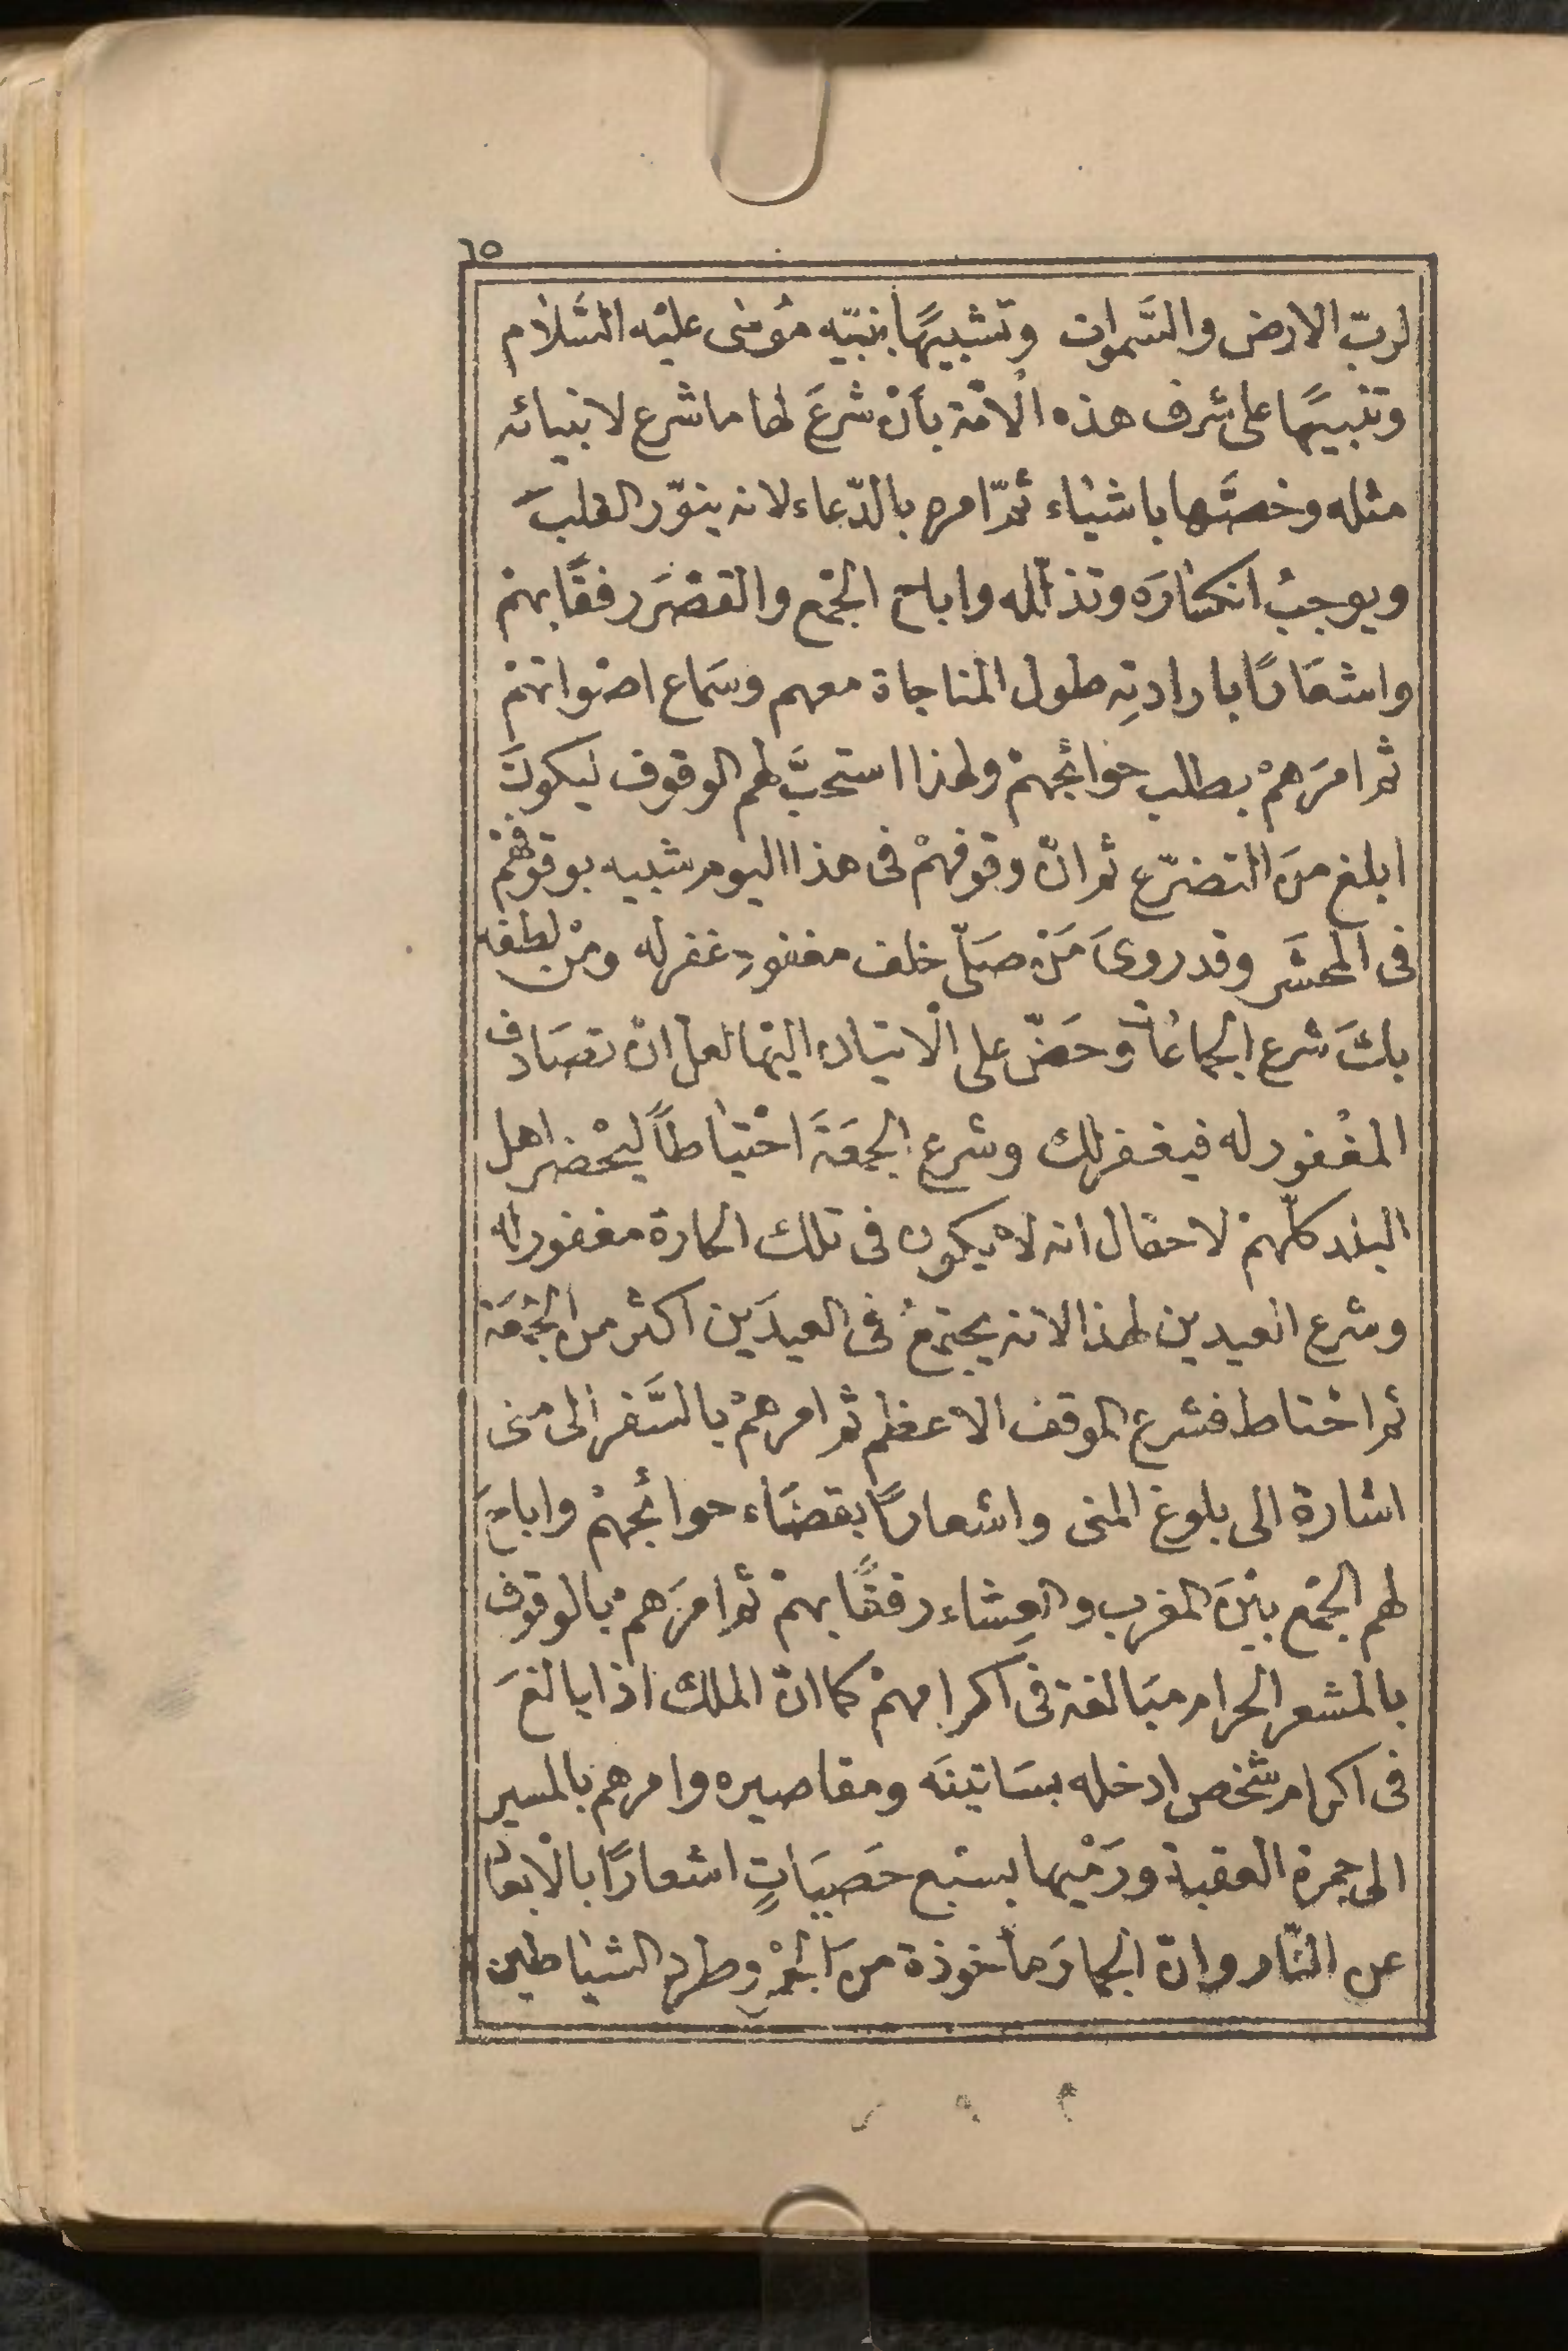 ٦٥
لربّ الارض والسَّموات وتشبيهًا بنبيّه موسٰى عليْه السَّلام
وتنبيهًا على شرف هذه الْامّة بأنْ شرعَ لها ما شرع لانبيائه
مثله وخصَّها باشيٰاء ثمّ امره بالدّعاء لانه ينوّر القلبَ
ويوجبُ انكسٰارَه وتذلّله واباح الجمْع والقصْرَ رفقًا بهمْ
واشعَارًا بارادتِه طول المناجاة معهم وسَماع اصْواتهمْ
ثم امرَهمْ بطلب حوائجهمْ ولهذا استحبَّ لهم الوقوف ليكونَ
ابلغ منَ التضرّع ثم انّ وقوفهمْ فى هذا اليوم شبيه بوقوفهمْ
فى المحشَر وقد روىَ مَنْ صَلّى خلف مغفورٍ غفر له ومْن لطفه
بكَ شرع الجماعٰات وحَضّ على الْاتيان اليْها لعلّ انْ تصَادف
المغْفور له فيغفر لك وشرع الجمعَةَ احْتيٰاطًا ليحْضر اهل
البلد كلّهمْ لاحتمال انه لا يكون فى تلك الحارة مغفور له
وشرع العيدين لهذا لانه يجتمعُ فى العيدَين اكثر من الجُمعَة
ثم احْتاط فشرع الموقف الاعظم ثم امرهمْ بالسَّفر الى منى
اشارة الى بلوغ المنى واشعارًا بقضَاء حوائجهمْ واباحَ
لهم الجمْع بيْنَ المغرب والعِشاء رفقًا بهمْ ثم امرَهمْ بالوقوف
بالمشعر الحرام مبَالغة فى اكرامهمْ كما انّ الملك اذا بالغَ
فى اكرام شخص ادخله بسَاتينَه ومقاصيره وامرهم بالمسير
الى جمرة العقبة ورَمْيها بسبْع حَصيَاتٍ اشعارًا بالْابعٰا
عن النّار وانّ الجمارَ مأخوذة منَ الجمْرِ وطرد الشيٰاطين